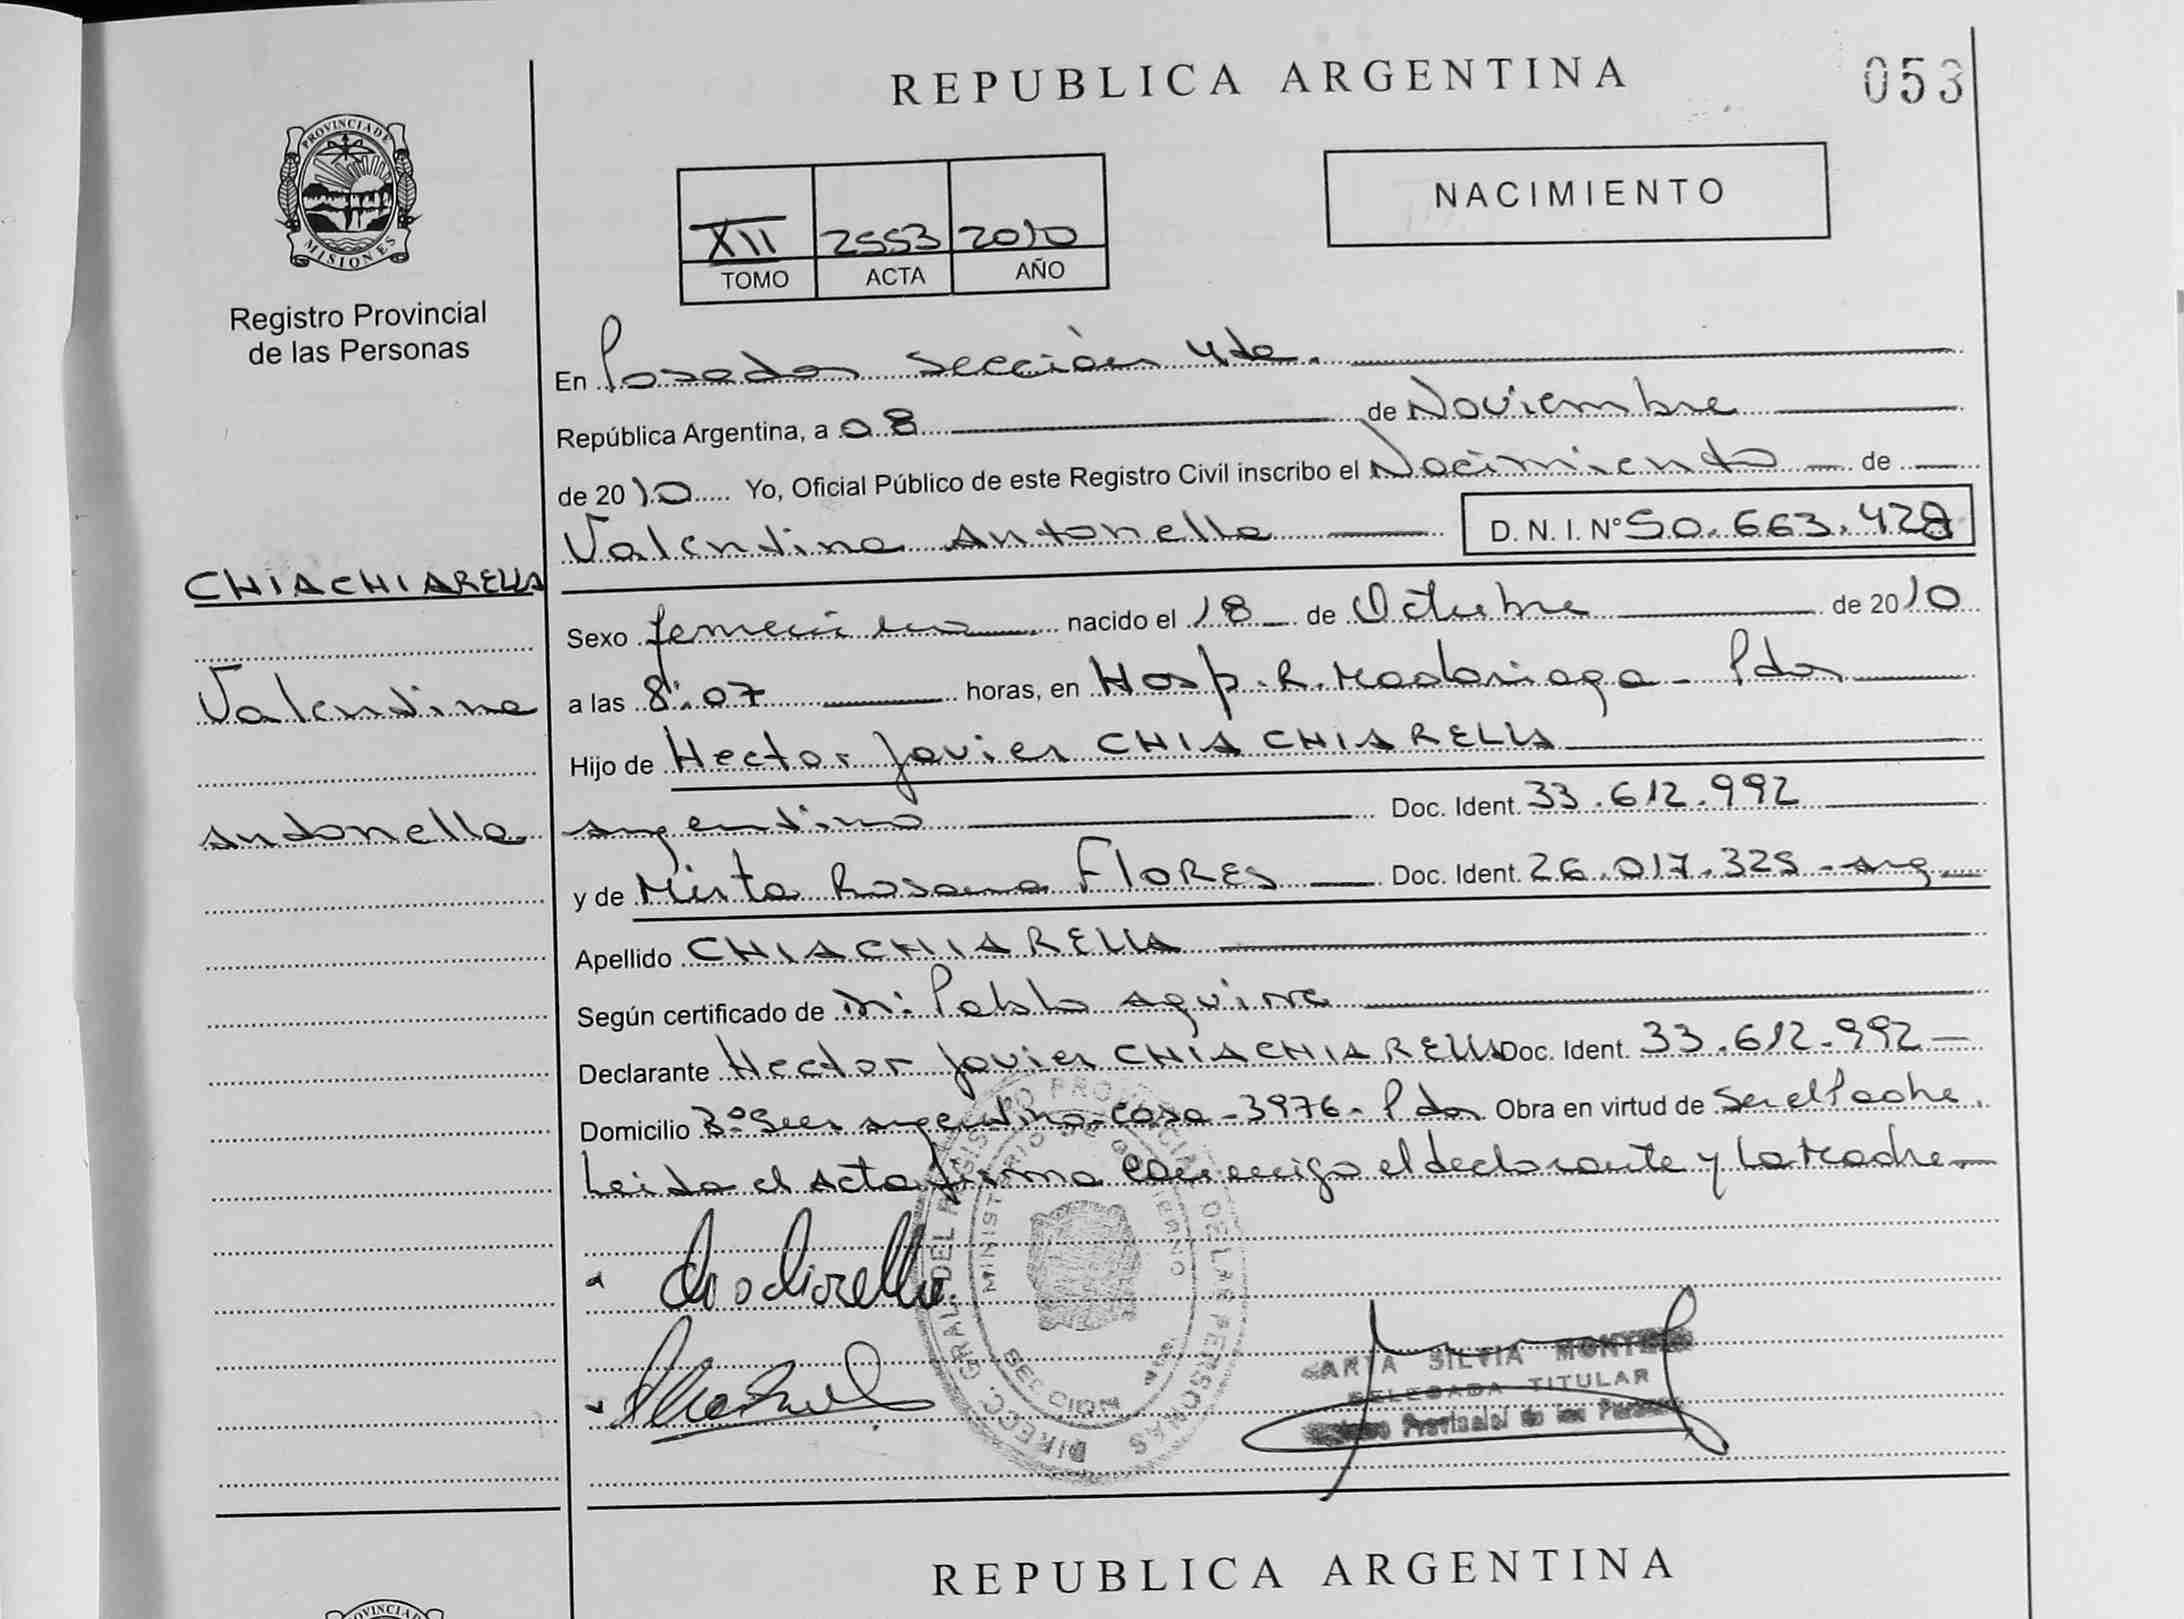 REPUBLICA ARGENTINA
053
PROVINCIA DE
MISIONES
Registro Provincial
de las Personas
NACIMIENTO
XII 2553 2010
TOMO ACTA AÑO
En Posadas Sección 4ta.
República Argentina, a 08 de Noviembre
de 2010 Yo, Oficial Público de este Registro Civil inscribo el Nacimiento de
Valentina Antonella D. N. I. N° 50.663.428
CHIACHIARELLA
Valentina
Antonella
Sexo femenino nacido el 18 de Octubre de 2010
a las 8:07 horas, en Hosp. R. Madariaga - Pdas
Hijo de Hector Javier CHIACHIARELLA
argentino Doc. Ident. 33.612.992
y de Mirta Rosana FLORES Doc. Ident. 26.017.325 - arg
Apellido CHIACHIARELLA
Según certificado de Pablo Aguirre
Declarante Hector Javier CHIACHIARELLA Doc. Ident. 33.612.992
Domicilio argentino - casa - 3976 - Pdas Obra en virtud de Ser el Padre.
Leida el Acta firma conmigo el declarante y la Madre
DIRECC. GRAL. DEL REGISTRO PROVINCIAL DE LAS PERSONAS
MINISTERIO DE GOBIERNO
SECCION 4ta
SILVIA
DELEGADA TITULAR
Provincial de las Personas
REPUBLICA ARGENTINA